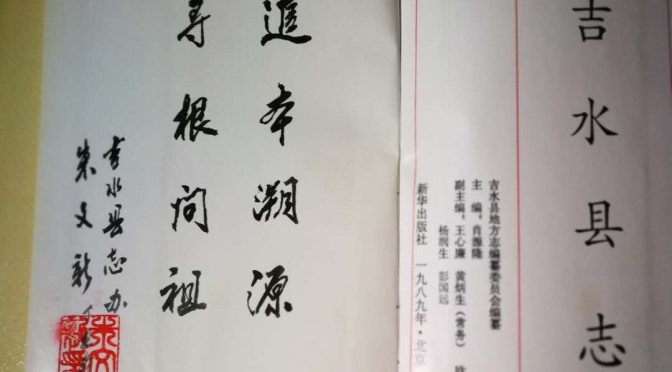 吉水县志
吉水县地方志编纂委员会编纂
主 编,肖源隆
副主编,王心廉 黄炳生(常务)
杨润生 彭国远
新华出版社 一九八九年·北京
追本溯源
寻根问祖
吉水县志办
朱文新